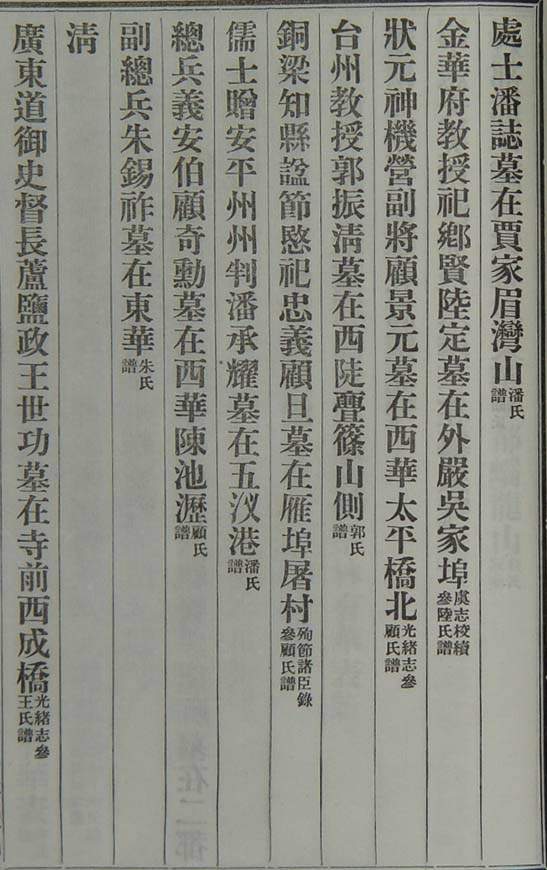 處士潘誌墓在賈家眉灣山潘氏譜
金華府教授祀鄉賢陸定墓在外嚴吳家埠虞志稜續參陸氏譜
狀元神機營副將顧景元墓在西華太平橋北光緒志參顧氏譜
台州教授郭振淸墓在西陡亹篠山側郭氏譜
銅梁知縣諡節愍祀忠義顧旦墓在雁埠屠村殉節諸臣錄參顧氏譜
儒士贈安平州州判潘承耀墓在五汊港潘氏譜
總兵義安伯顧奇勳墓在西華陳池瀝顧氏譜
副總兵朱錫祚墓在東華朱氏譜
淸
廣東道御史督長蘆鹽政王世功墓在寺前西成橋光緒志參王氏譜